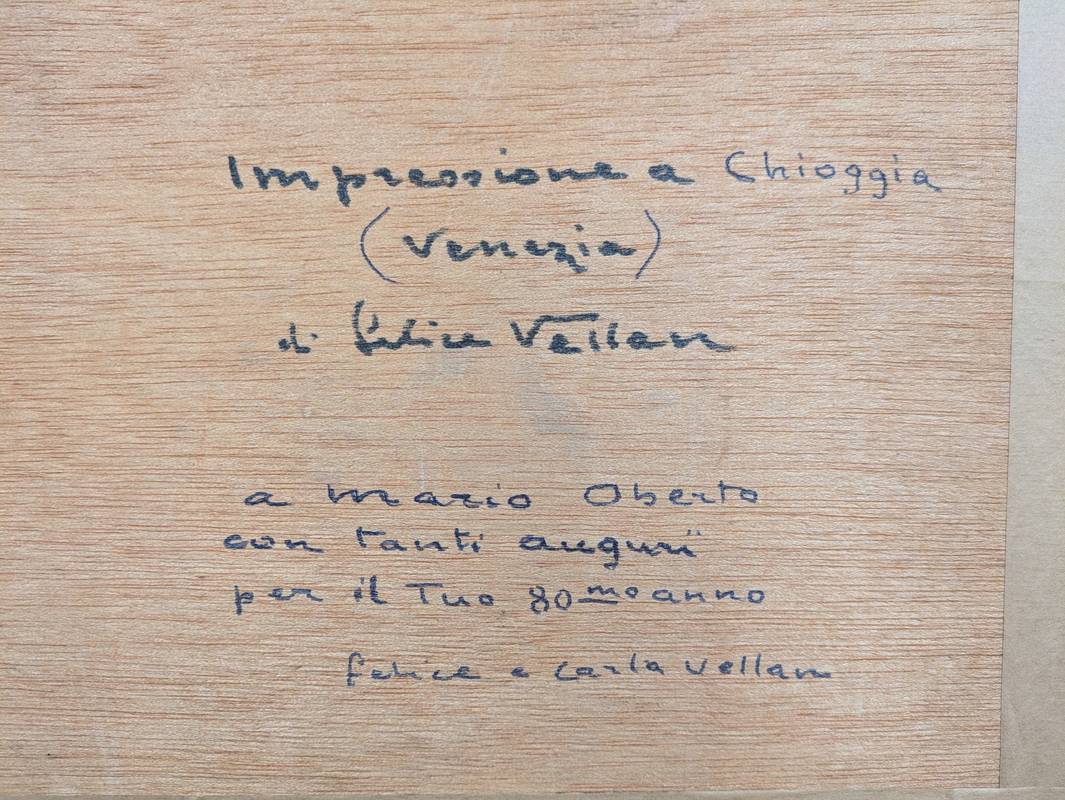 Impressione a Chioggia
(Venezia)
di Felice Vellan
a Mario Oberto
con tanti auguri
per il Tuo 80mo anno
Felice e Carla Vellan